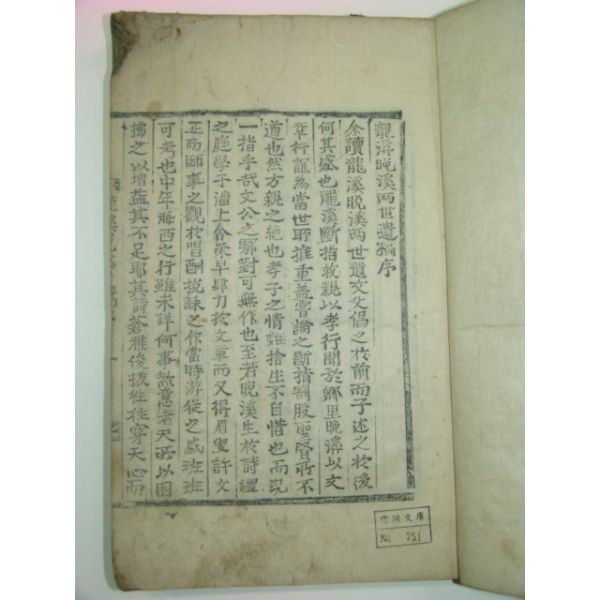 龍溪晩溪两世遺稿序
余讀龍溪晩溪两世遺文父倡之於前而子述之於後
何其盛也龍溪斷指救親以孝行聞於鄉里晩溪以文
章行誼為當世耶推重盖甞論之斷指割股聖賢所不
道也然方親之絶也孝子之情雖捨生不自惜也而況
一指乎哉文公之鄠對可無作也至若晩溪生於詩禮
之庭學于潘上舍梁早肆力於文章而又得眉叟許文
正而師事之觀於唱酬挽誄之作當時游從之盛班班
可考也中年海西之行雖未詳何事意者天所以困
拂之以增益其不足耶其詩蒼雅俊拔徃徃穿天心而
文庫
No. 751